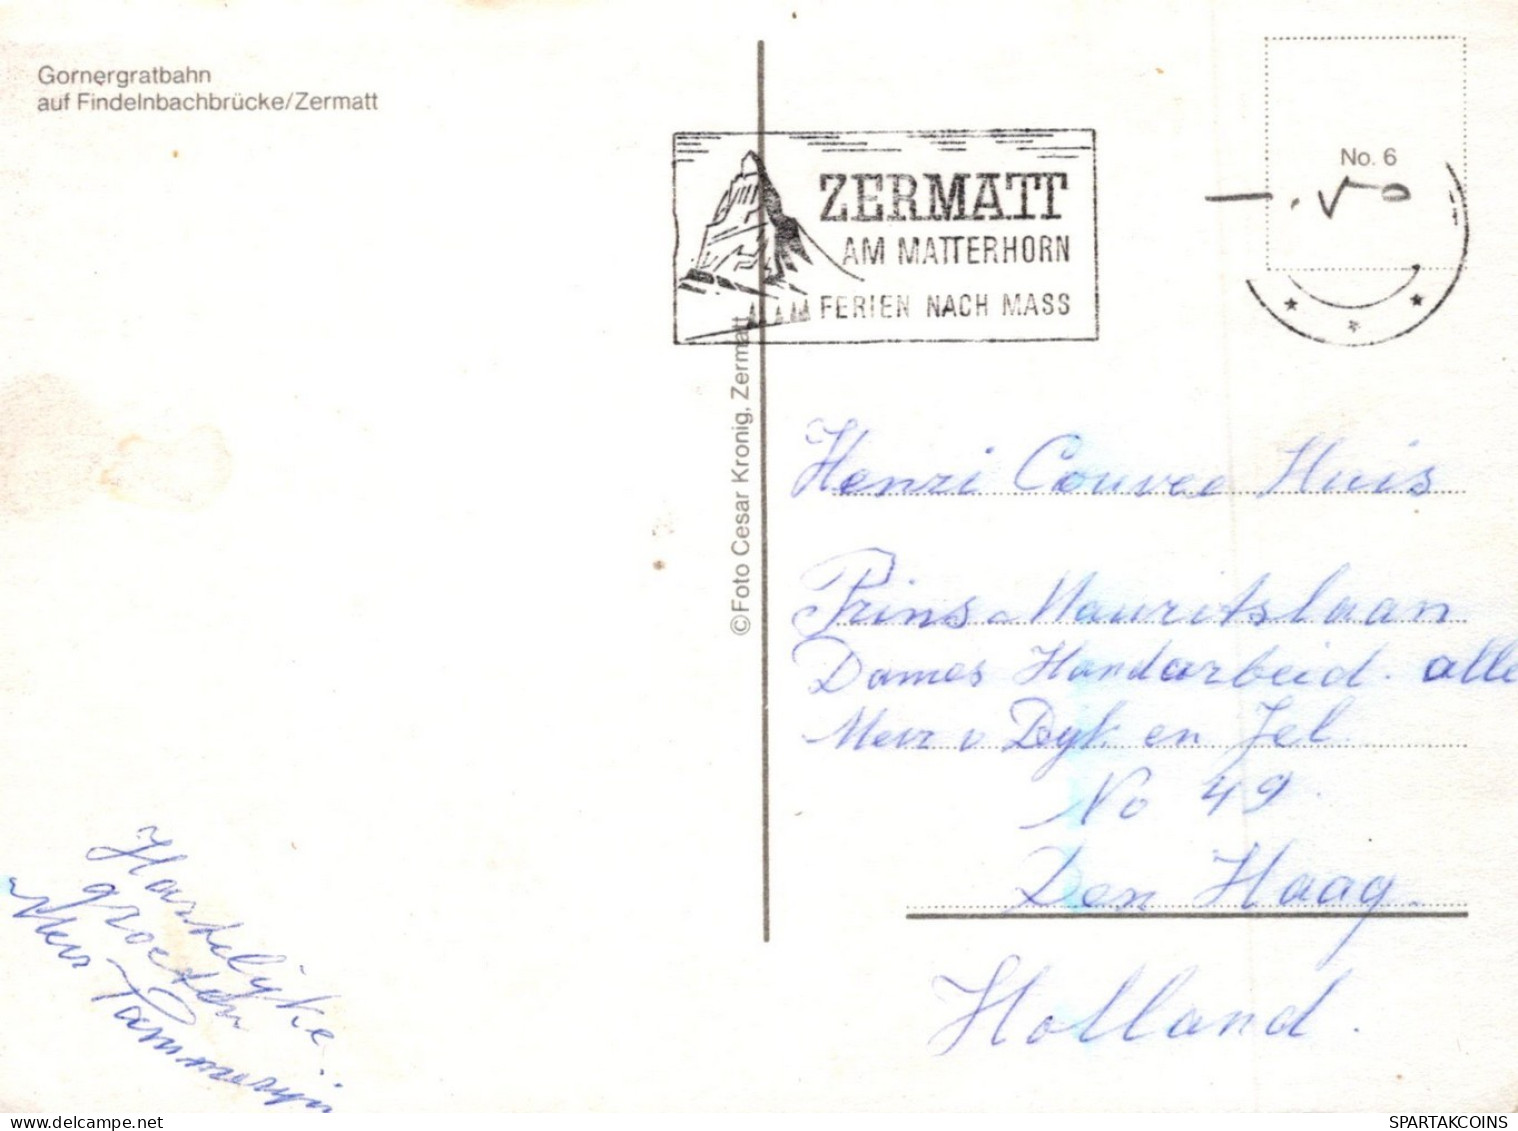 Gornergratbahn
auf Findelnbachbrücke/Zermatt
ZERMATT
AM MATTERHORN
FERIEN NACH MASS
No. 6
-.50
©Foto Cesar Kronig, Zermatt
Henri Couvee Huis
Prins Mauritslaan
Dames Handarbeid. alle
Mevr v Dyk en Jel
No 49.
Den Haag.
Holland.
Hartelijke
groeten
Mevr
delcampe.net
SPARTAKCOINS